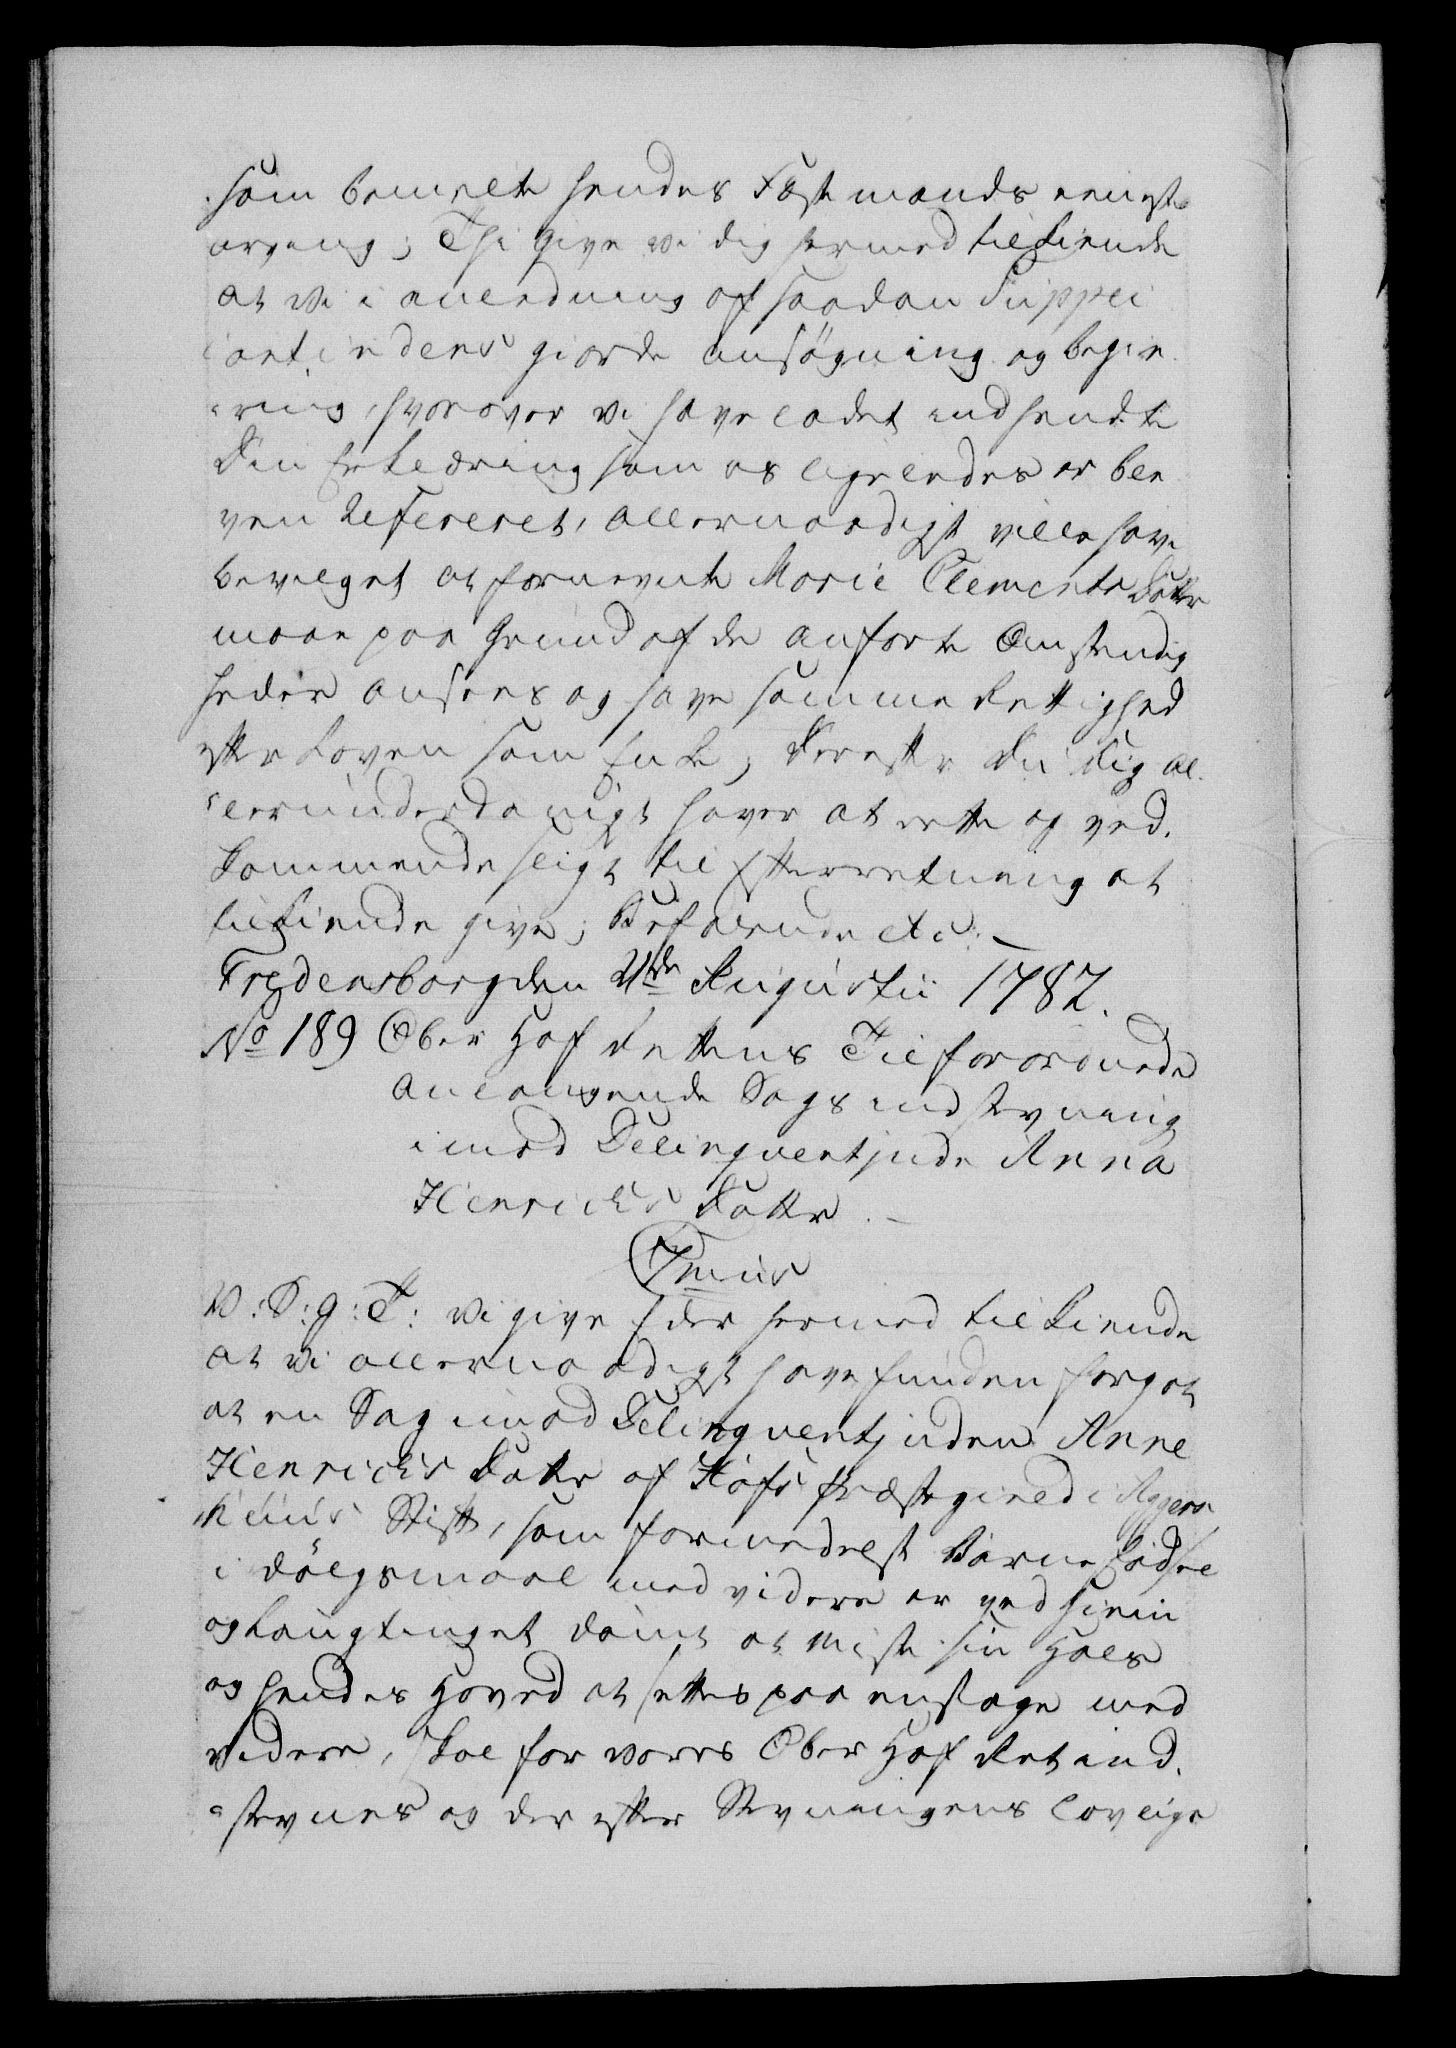 som bemelte hendes Fæstemands eeneste
arving; Thi give vi dig hermed tilkiende
at vi i anledning af saadan Suppli
cantindens giorde ansøgning og begie
ring, hvorover vi have ladet indhendte
Din Erklæring som os ligeledes er ble
ven Refereret, allernaadigst ville have
bevilget at fornevnte Marie Clements Datter
maae paa Grund af de anførte Omstendig
heder ansees og have samme Rettighed
efter Loven som Enke, Derefter Du dig al
lerunderdanigst haver at rette og ved
kommende sligt til Efterretning at
tilkiende give; Befalende etc:
Fredensborg den 21de Augustii 1782.
No 189 Ober Hof Rettens Tilforordnede
anlangende Sags indstevning
imod Delinqventinde Anna
Henrichs Datter.
V: S: g: T: Vi give Eder hermed tilkiende
at vi allernaadigst have funden for got
at en Sag imod Delinqventinden Anne
Henrichs Datter af Hofs Præstegield i Aggers
huus Stift, som formedelst Barne Fødsel
i dølgsmaal med videre er ved Hiem
og Laugtinget dømt at miste sin Hals
og hendes Hoved at settes paa en stage med
videre, skal for vores Ober Hof Ret ind
stevnes og der efter Stevningens lovlige